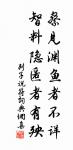 察見淵魚者不詳
智料隱匿者有殃
列子說符詞典網集